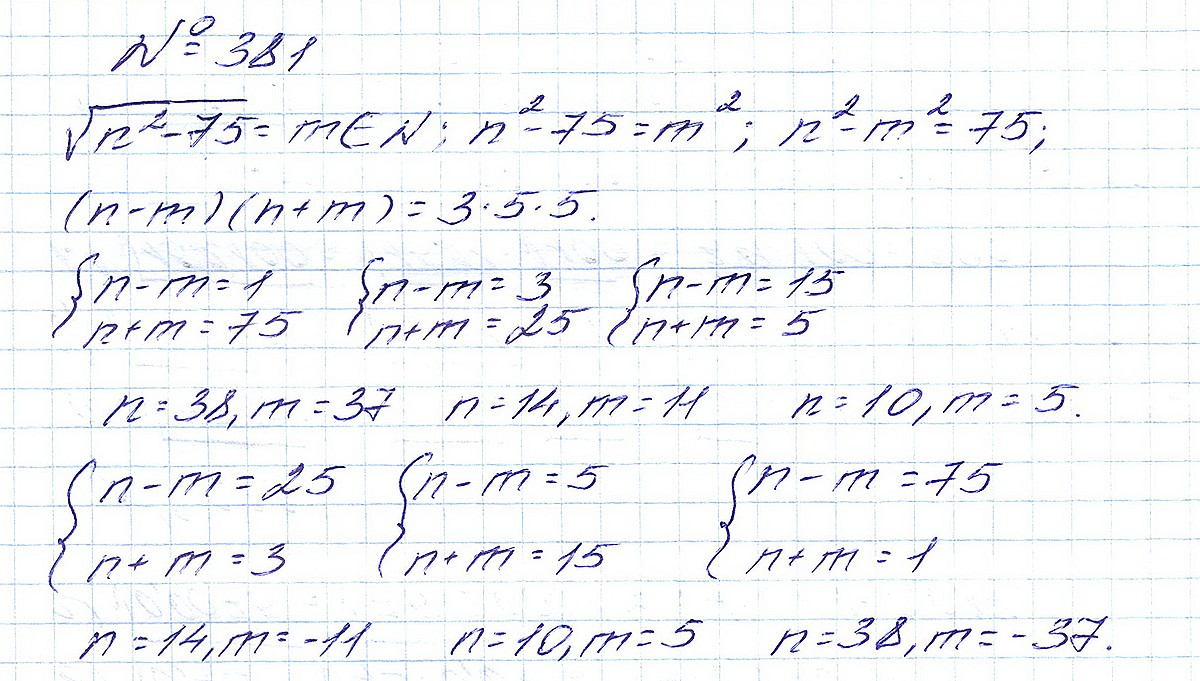 № 381
√n²-75 = m∈N; n²-75=m²; n²-m²=75;
(n-m)(n+m)=3·5·5.
{n-m=1 {n-m=3 {n-m=15
n+m=75 n+m=25 n+m=5
n=38, m=37 n=14, m=11 n=10, m=5.
{n-m=25 {n-m=5 {n-m=75
n+m=3 n+m=15 n+m=1
n=14, m=-11 n=10, m=5 n=38, m=-37.